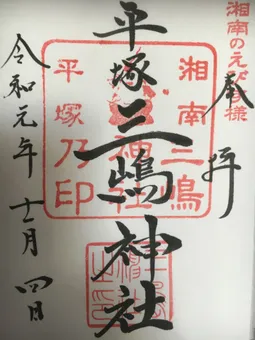 湘南のえびす様
奉拝
平塚三嶋神社
湘南三嶋
神社
平塚乃印
令和元年十一月四日